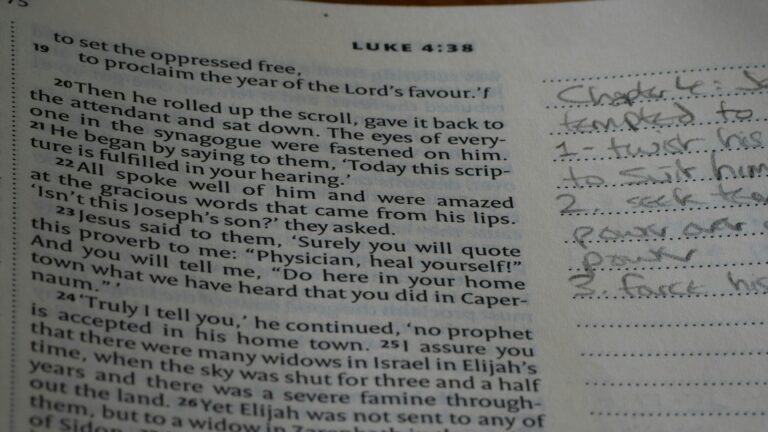 75
LUKE 4:38
to set the oppressed free,
19 to proclaim the year of the Lord's favour.'f
20 Then he rolled up the scroll, gave it back to
the attendant and sat down. The eyes of every-
one in the synagogue were fastened on him.
21 He began by saying to them, 'Today this scrip-
ture is fulfilled in your hearing.'
22 All spoke well of him and were amazed
at the gracious words that came from his lips.
'Isn't this Joseph's son?' they asked.
23 Jesus said to them, 'Surely you will quote
this proverb to me: "Physician, heal yourself!"
And you will tell me, "Do here in your home
town what we have heard that you did in Caper-
naum."'
24 'Truly I tell you,' he continued, 'no prophet
is accepted in his home town. 25 I assure you
that there were many widows in Israel in Elijah's
time, when the sky was shut for three and a half
years and there was a severe famine through-
out the land. 26 Yet Elijah was not sent to any of
them, but to a widow in Zarephath in the
of Sidon.
Chapter 4:
tempted to
1 - twist his
to suit him
2. seek
power over
power
3. force his